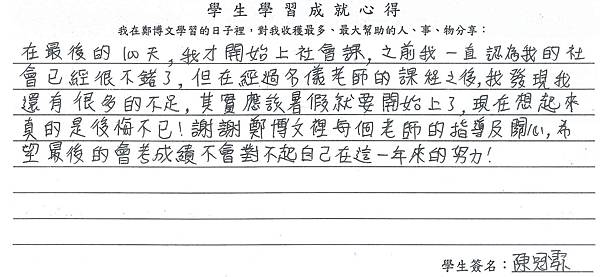 學生學習成就心得
我在鄭博文學習的日子裡，對我收穫最多、最大幫助的人、事、物分享：
在最後的100天，我才開始上社會課，之前我一直認為我的社
會已經很不錯了，但在經過名儀老師的課程之後，我發現我
還有很多的不足，其實應該暑假就要開始上了，現在想起來
真的是後悔不已！謝謝鄭博文裡每個老師的指導及關心，希
望最後的會考成績不會對不起自己在這一年來的努力！
學生簽名：陳冠霖